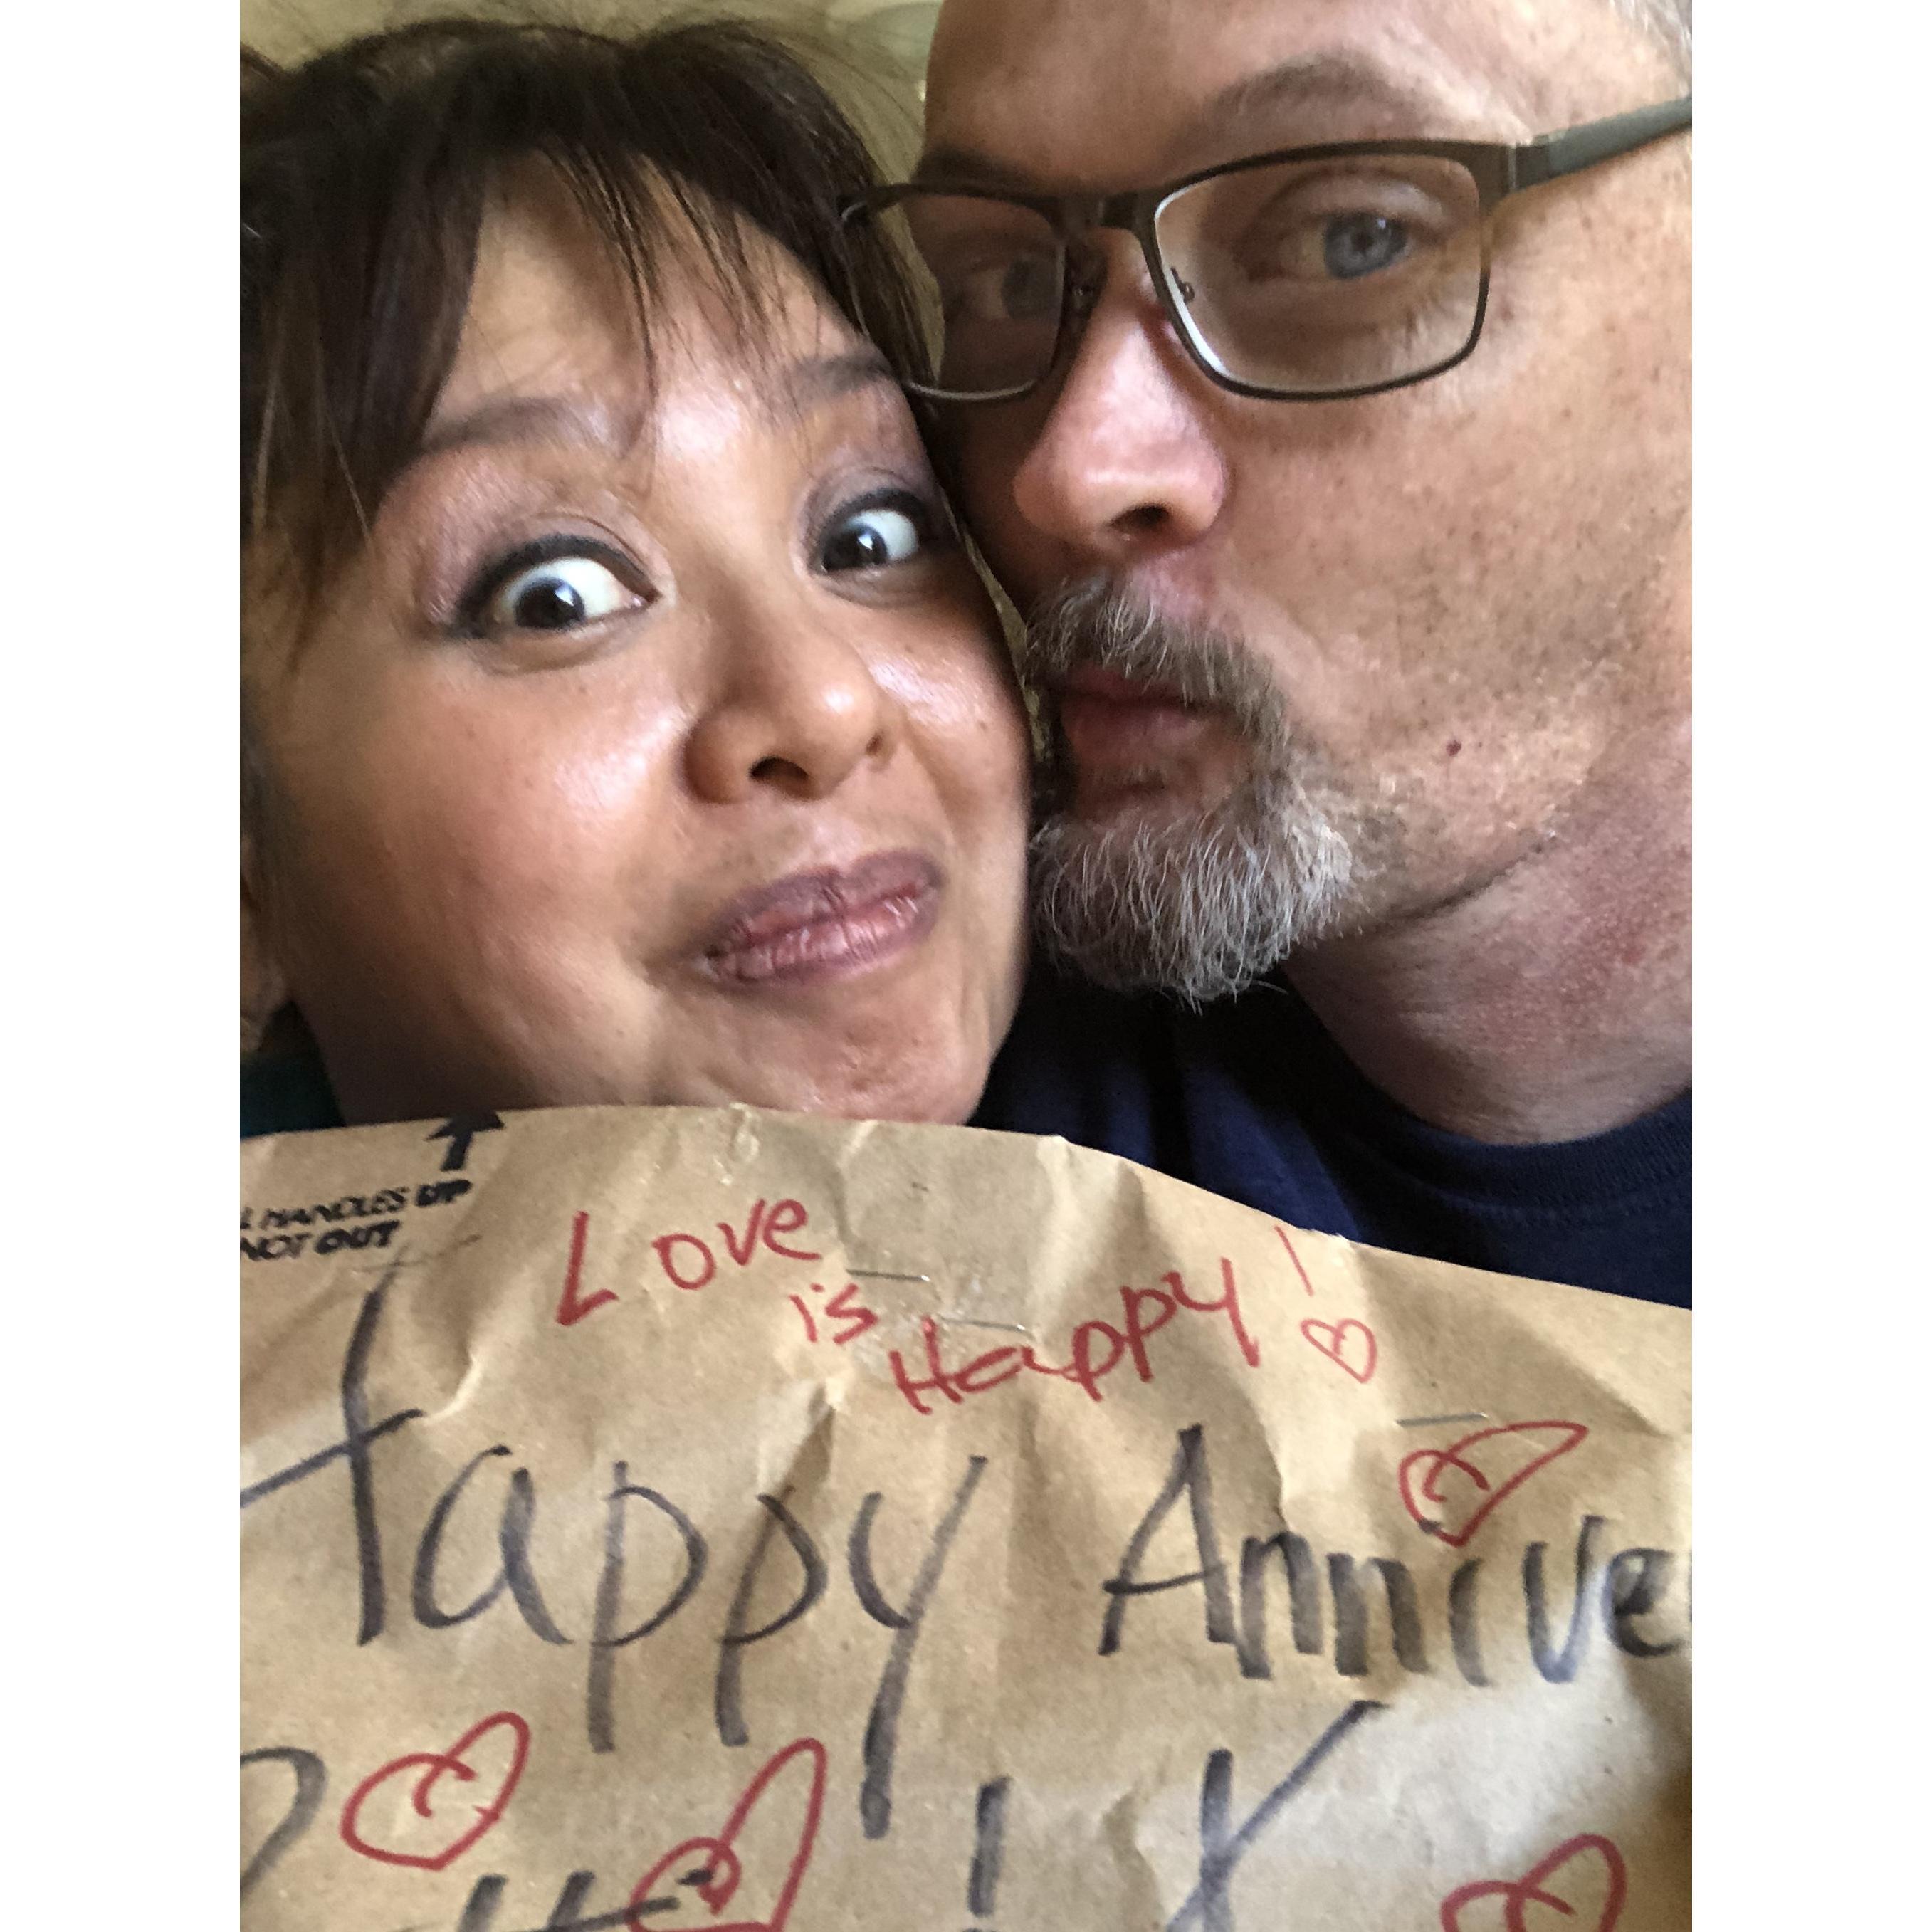 HANDLES UP
NOT OUT
Love
is
Happy!
Happy Annive